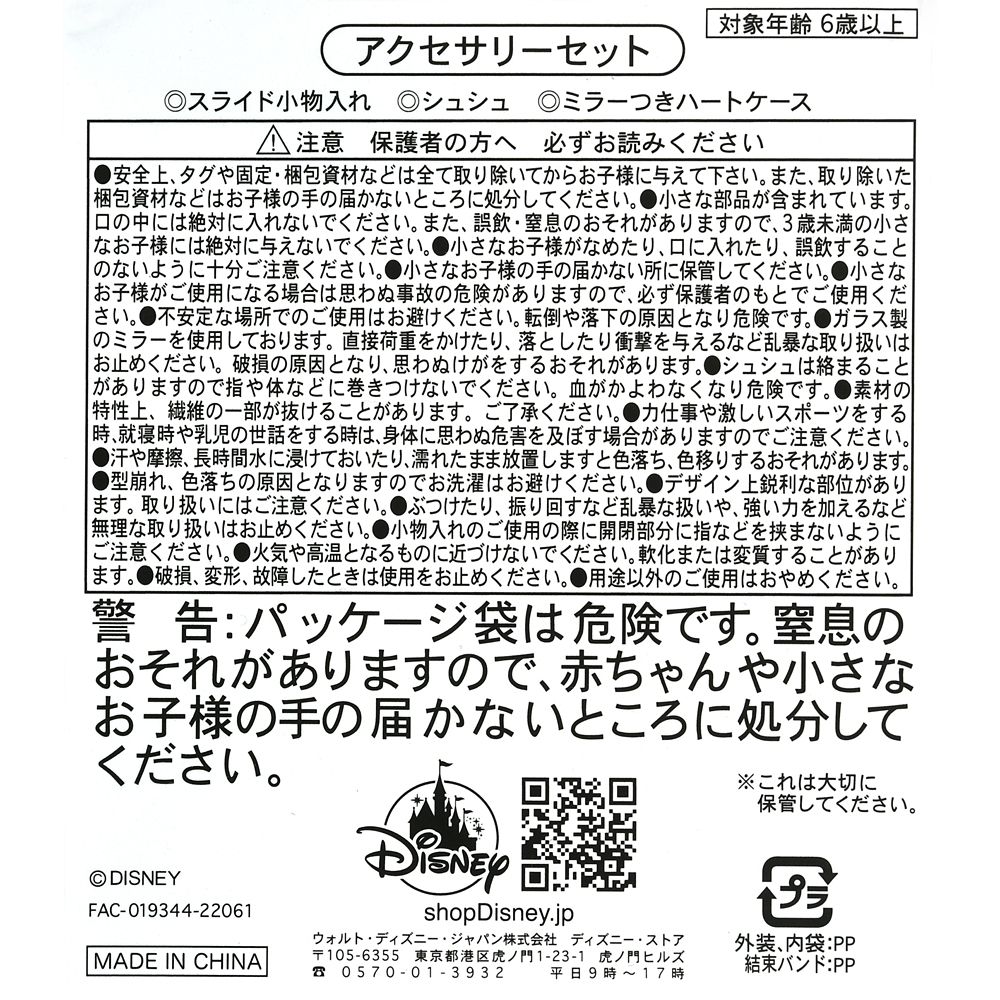 対象年齢 6歳以上
アクセサリーセット
◎スライド小物入れ ◎シュシュ ◎ミラーつきハートケース
⚠注意 保護者の方へ 必ずお読みください
●安全上、タグや固定・梱包資材などは全て取り除いてからお子様に与えて下さい。また、取り除いた
梱包資材などはお子様の手の届かないところに処分してください。●小さな部品が含まれています。
口の中には絶対に入れないでください。また、誤飲・窒息のおそれがありますので、3歳未満の小さ
なお子様には絶対に与えないでください。●小さなお子様がなめたり、口に入れたり、誤飲すること
のないように十分ご注意ください。●小さなお子様の手の届かない所に保管してください。●小さな
お子様がご使用になる場合は思わぬ事故の危険がありますので、必ず保護者のもとでご使用くだ
さい。●不安定な場所でのご使用はお避けください。転倒や落下の原因となり危険です。●ガラス製
のミラーを使用しております。直接荷重をかけたり、落としたり衝撃を与えるなど乱暴な取り扱いは
お止めください。破損の原因となり、思わぬけがをするおそれがあります。●シュシュは絡まること
がありますので指や体などに巻きつけないでください。血がかよわなくなり危険です。●素材の
特性上、繊維の一部が抜けることがあります。ご了承ください。●力仕事や激しいスポーツをする
時、就寝時や乳児の世話をする時は、身体に思わぬ危害を及ぼす場合がありますのでご注意ください。
●汗や摩擦、長時間水に浸けておいたり、濡れたまま放置しますと色落ち、色移りするおそれがあります。
●型崩れ、色落ちの原因となりますのでお洗濯はお避けください。●デザイン上鋭利な部位があり
ます。取り扱いにはご注意ください。●ぶつけたり、振り回すなど乱暴な扱いや、強い力を加えるなど
無理な取り扱いはお止めください。●小物入れのご使用の際に開閉部分に指などを挟まないように
ご注意ください。●火気や高温となるものに近づけないでください。軟化または変質することがあり
ます。●破損、変形、故障したときは使用をお止めください。●用途以外のご使用はおやめください。
警 告:パッケージ袋は危険です。窒息の
おそれがありますので、赤ちゃんや小さな
お子様の手の届かないところに処分して
ください。
※これは大切に
保管してください。
Disney
shopDisney.jp
©DISNEY
FAC-019344-22061
MADE IN CHINA
ウォルト・ディズニー・ジャパン株式会社 ディズニー・ストア
〒105-6355 東京都港区虎ノ門1-23-1 虎ノ門ヒルズ
☎ 0570-01-3932 平日9時〜17時
プラ
外装、内袋:PP
結束バンド:PP